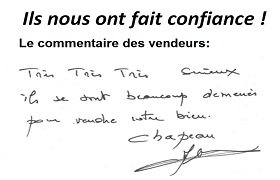 Ils nous ont fait confiance !
Le commentaire des vendeurs:
Très Très Très sérieux
ils se sont beaucoup demenés
pour vendre votre bien.
Chapeau